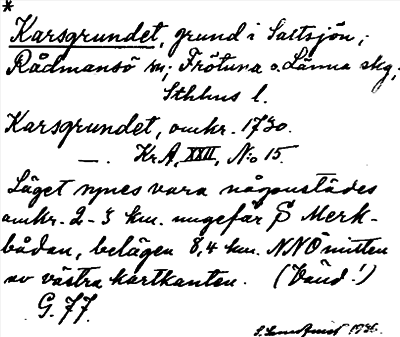 *
Karsgrundet, grund i Saltsjön,
Rådmansö sn, Frötuna o. Länna skg,
Sthlms l.
Karsgrundet, omkr. 1730.
—. Kr. A, XXII, N:o 15.
Läget synes vara någonstädes
omkr. 2-3 km. ungefär S Merk-
bådan, belägen 8,4 km. NNÖ mitten
av västra kartkanten. (Vänd!)
G. 77.
1936.